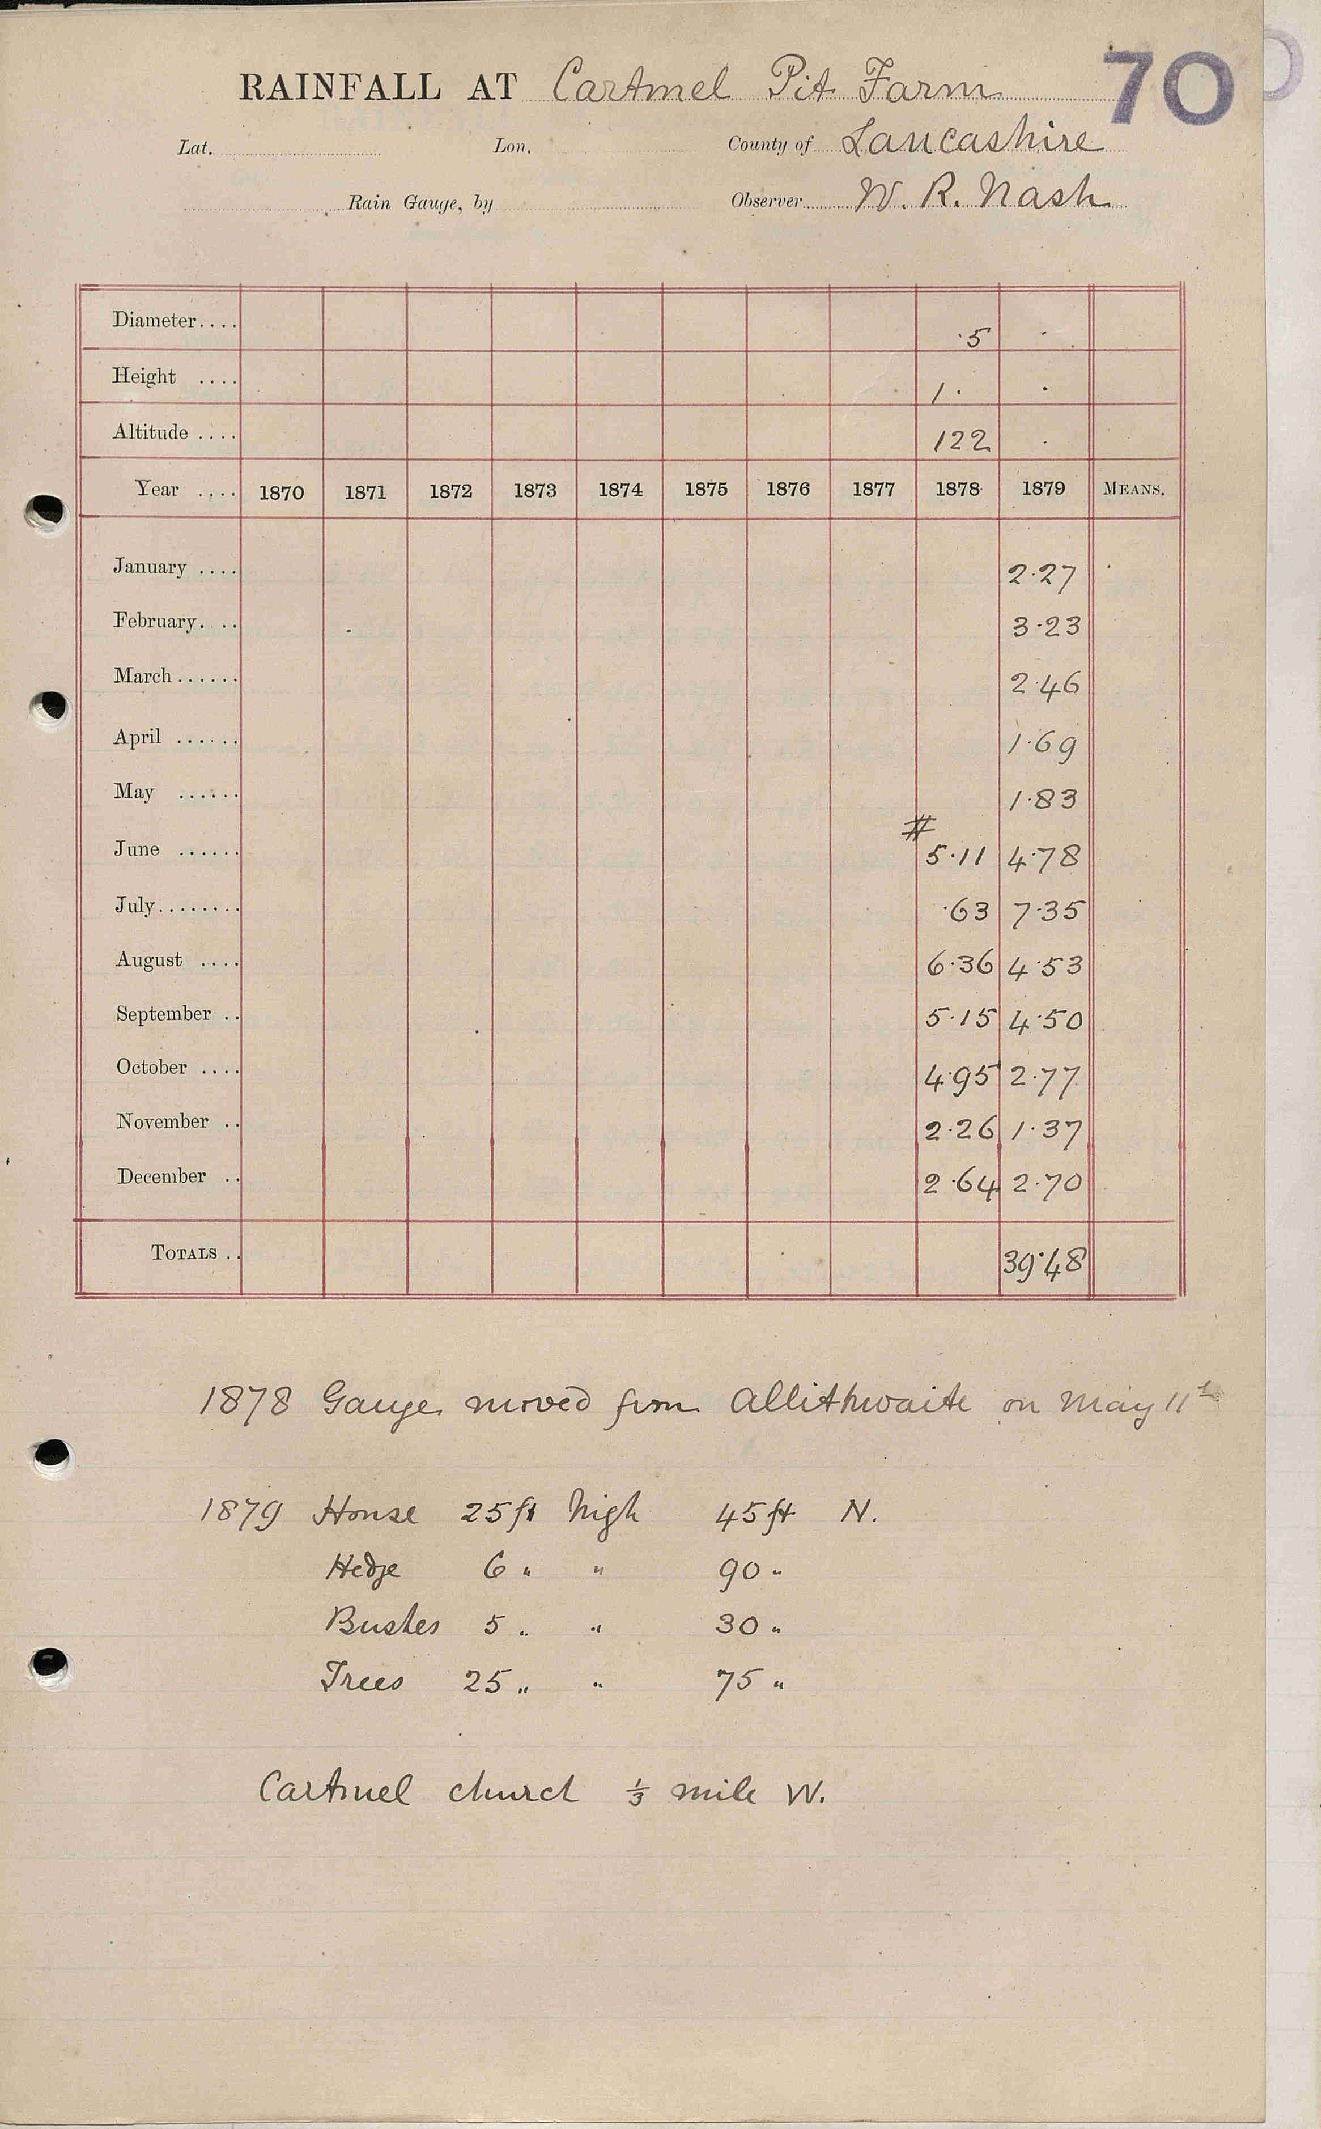 RAINFALL AT Cartmel Pit Farm 70
Lat. Lon. County of Lancashire
Rain Gauge, by Observer W. R. Nash
Diameter.... ·5 ·
Height .... 1· ·
Altitude .... 122 ·
Year .... 1870 1871 1872 1873 1874 1875 1876 1877 1878 1879 MEANS.
January .... 2·27
February. .. 3·23
March ...... 2·46
April ...... 1·69
May ...... 1·83
#
June ...... 5·11 4·78
July........ ·63 7·35
August .... 6·36 4·53
September .. 5·15 4·50
October .... 4·95 2·77
November .. 2·26 1·37
December .. 2·64 2·70
TOTALS .. 39·48
1878 Gauge moved from Allithwaite on May 11th
1879 House 25ft high 45ft N.
Hedge 6 " " 90 "
Bushes 5 " " 30 "
Trees 25 " " 75 "
Cartmel church 1/3 mile W.